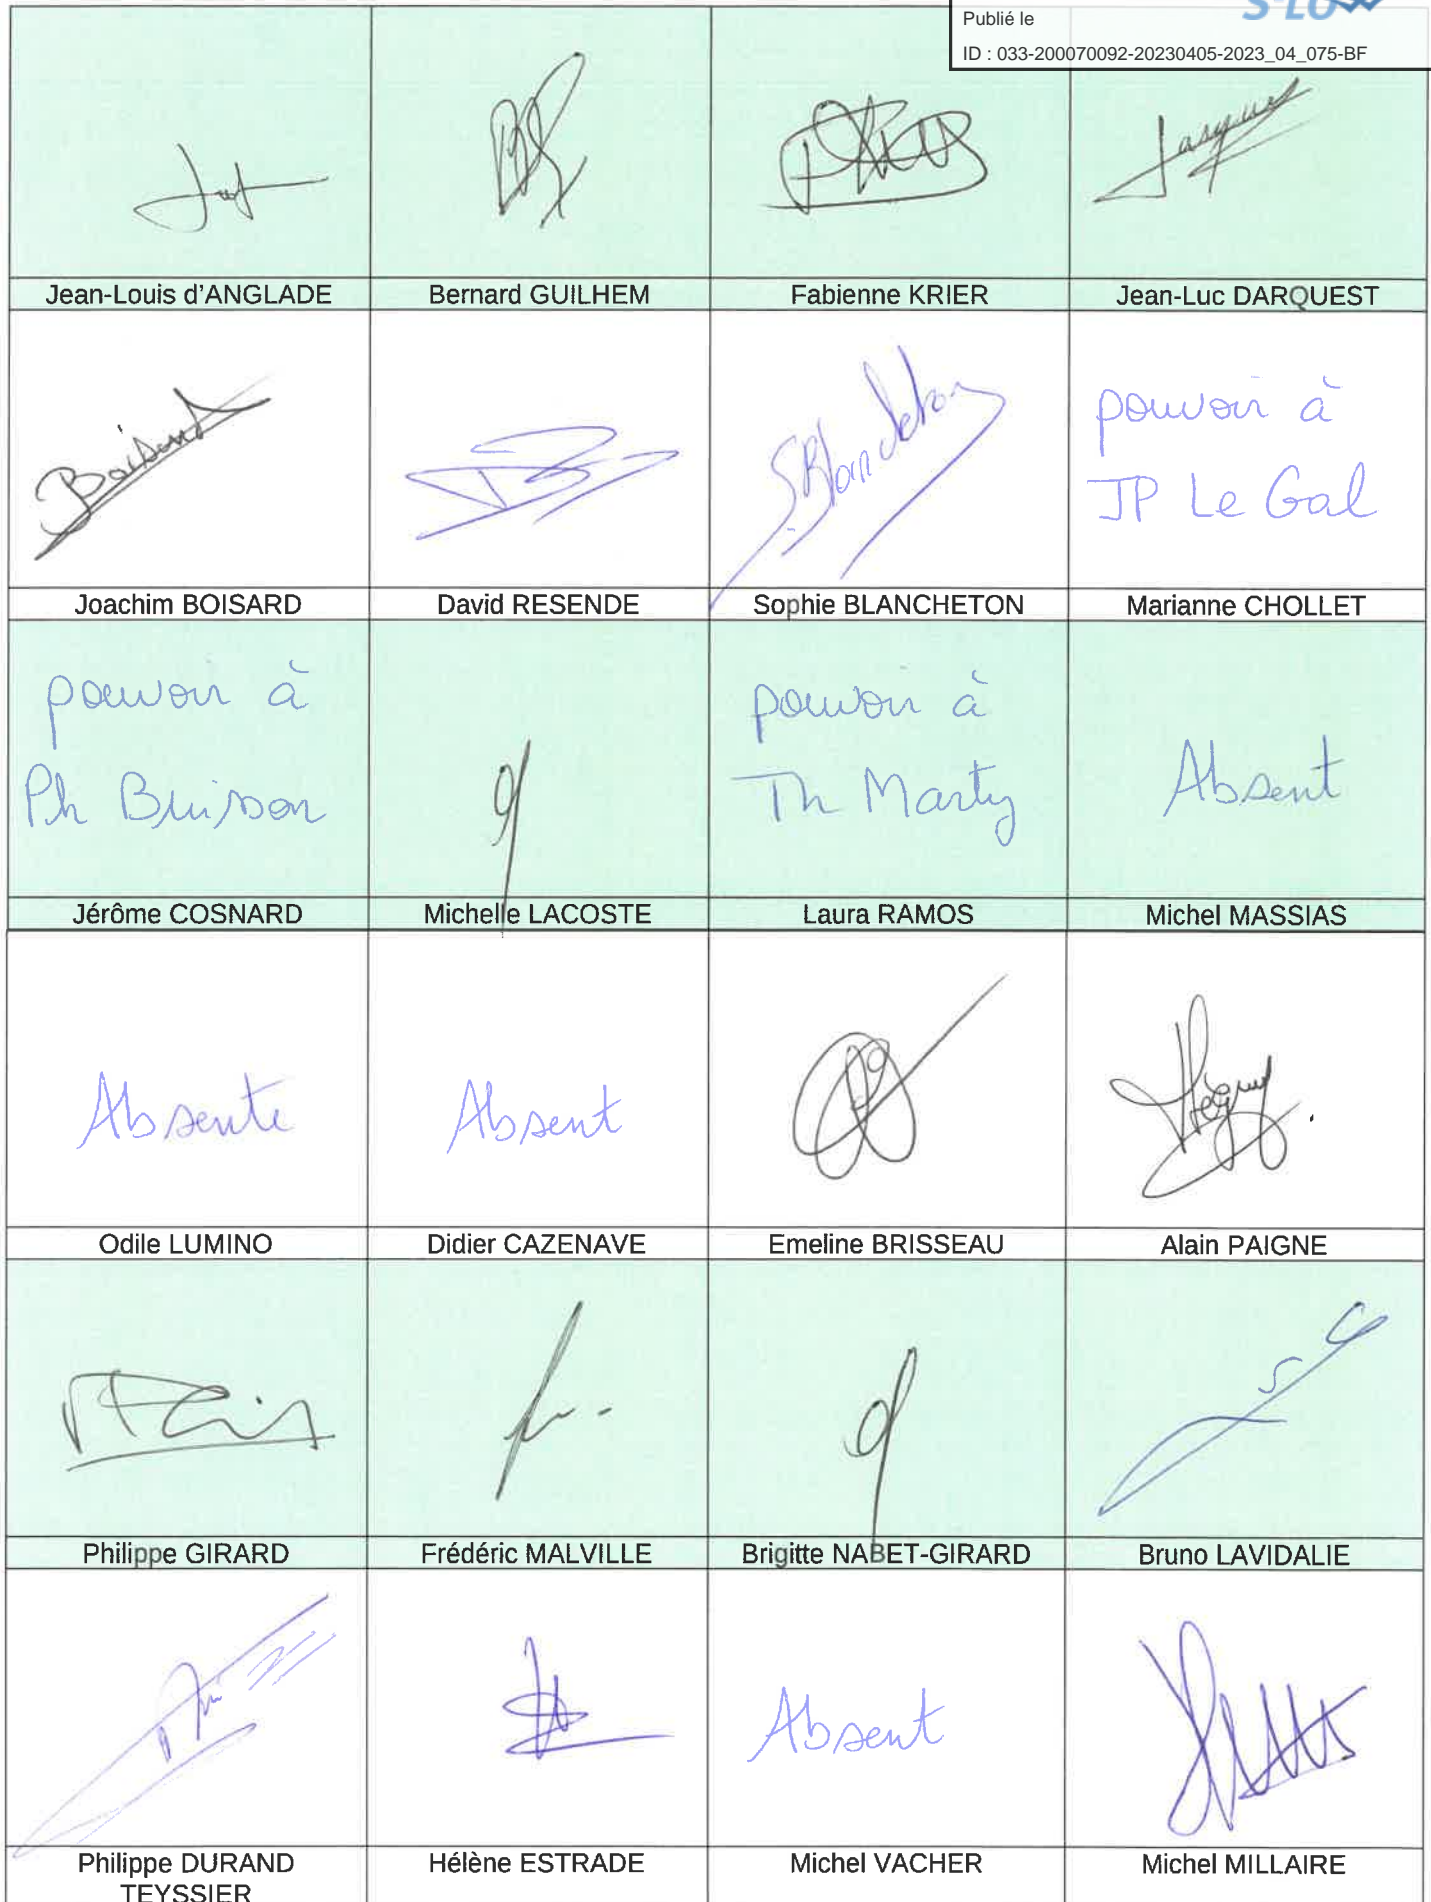 S²LOW
Publié le
ID : 033-200070092-20230405-2023_04_075-BF
Jean-Louis d'ANGLADE
Bernard GUILHEM
Fabienne KRIER
Jean-Luc DARQUEST
Boisard
S. Blancheton
pouvoir à
JP Le Gal
Joachim BOISARD
David RESENDE
Sophie BLANCHETON
Marianne CHOLLET
pouvoir à
Ph Buisson
pouvoir à
Th Marty
Absent
Jérôme COSNARD
Michelle LACOSTE
Laura RAMOS
Michel MASSIAS
Absente
Absent
Odile LUMINO
Didier CAZENAVE
Emeline BRISSEAU
Alain PAIGNE
Philippe GIRARD
Frédéric MALVILLE
Brigitte NABET-GIRARD
Bruno LAVIDALIE
Absent
Philippe DURAND
TEYSSIER
Hélène ESTRADE
Michel VACHER
Michel MILLAIRE